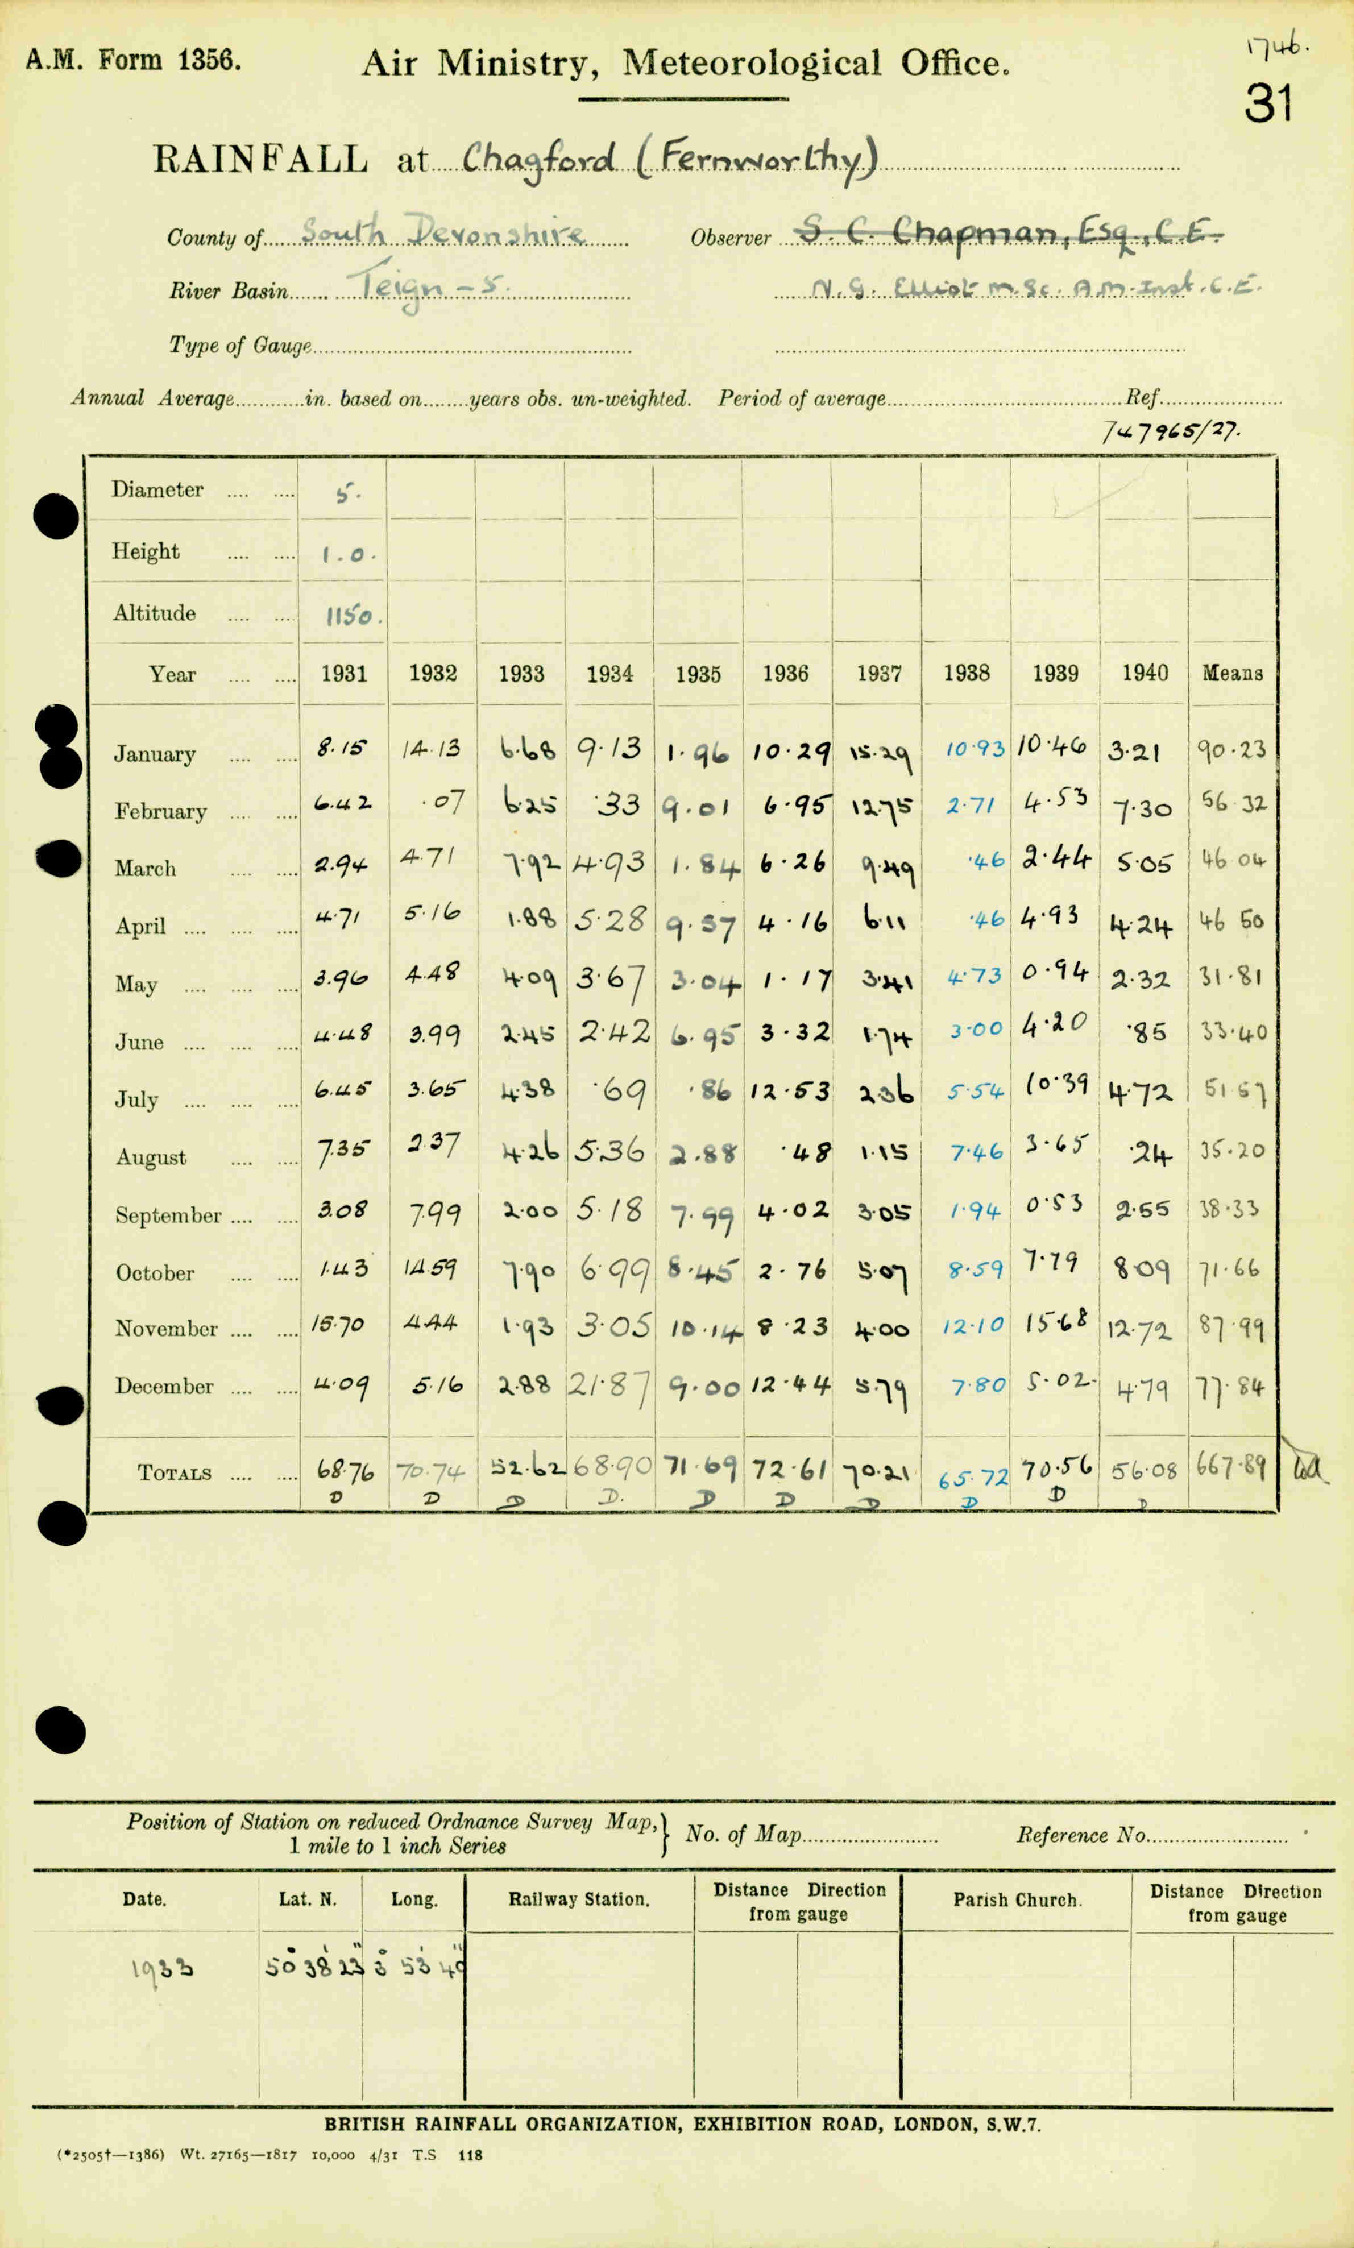 1746.
A.M. Form 1356. Air Ministry, Meteorological Office.
31
RAINFALL at Chagford (Fernworthy)
County of South Devonshire Observer S. C. Chapman, Esq., C.E.
River Basin Teign - 5. N. G. Elliot M.Sc. A.M. Inst. C.E.
Type of Gauge
Annual Average in. based on years obs. un-weighted. Period of average Ref.
747965/27.
Diameter 5.
Height 1.0.
Altitude 1150.
Year 1931 1932 1933 1934 1935 1936 1937 1938 1939 1940 Means
January 8.15 14.13 6.68 9.13 1.96 10.29 15.29 10.93 10.46 3.21 90.23
February 6.42 .07 6.25 .33 9.01 6.95 12.75 2.71 4.53 7.30 56 32
March 2.94 4.71 7.92 4.93 1.84 6.26 9.49 .46 2.44 5.05 46 04
April 4.71 5.16 1.88 5.28 9.57 4.16 6.11 .46 4.93 4.24 46 50
May 3.96 4.48 4.09 3.67 3.04 1.17 3.41 4.73 0.94 2.32 31.81
June 4.48 3.99 2.45 2.42 6.95 3.32 1.74 3.00 4.20 .85 33.40
July 6.45 3.65 4.38 .69 .86 12.53 2.36 5.54 10.39 4.72 51 57
August 7.35 2.37 4.26 5.36 2.88 .48 1.15 7.46 3.65 .24 35.20
September 3.08 7.99 2.00 5.18 7.99 4.02 3.05 1.94 0.53 2.55 38.33
October 1.43 14.59 7.90 6.99 8.45 2.76 5.07 8.59 7.79 8.09 71.66
November 15.70 4.44 1.93 3.05 10.14 8.23 4.00 12.10 15.68 12.72 87.99
December 4.09 5.16 2.88 21.87 9.00 12.44 5.79 7.80 5.02. 4.79 77.84
TOTALS 68.76 70.74 52.62 68.90 71.69 72.61 70.21 65.72 70.56 56.08 667.89
D D D D. D D D D D D
Position of Station on reduced Ordnance Survey Map, 1 mile to 1 inch Series No. of Map Reference No.
Date. Lat. N. Long. Railway Station. Distance Direction from gauge Parish Church. Distance Direction from gauge
1933 50° 38' 23" 3° 53' 40"
BRITISH RAINFALL ORGANIZATION, EXHIBITION ROAD, LONDON, S.W.7.
(*2505†—1386) Wt. 27165—1817 10,000 4/31 T.S 118